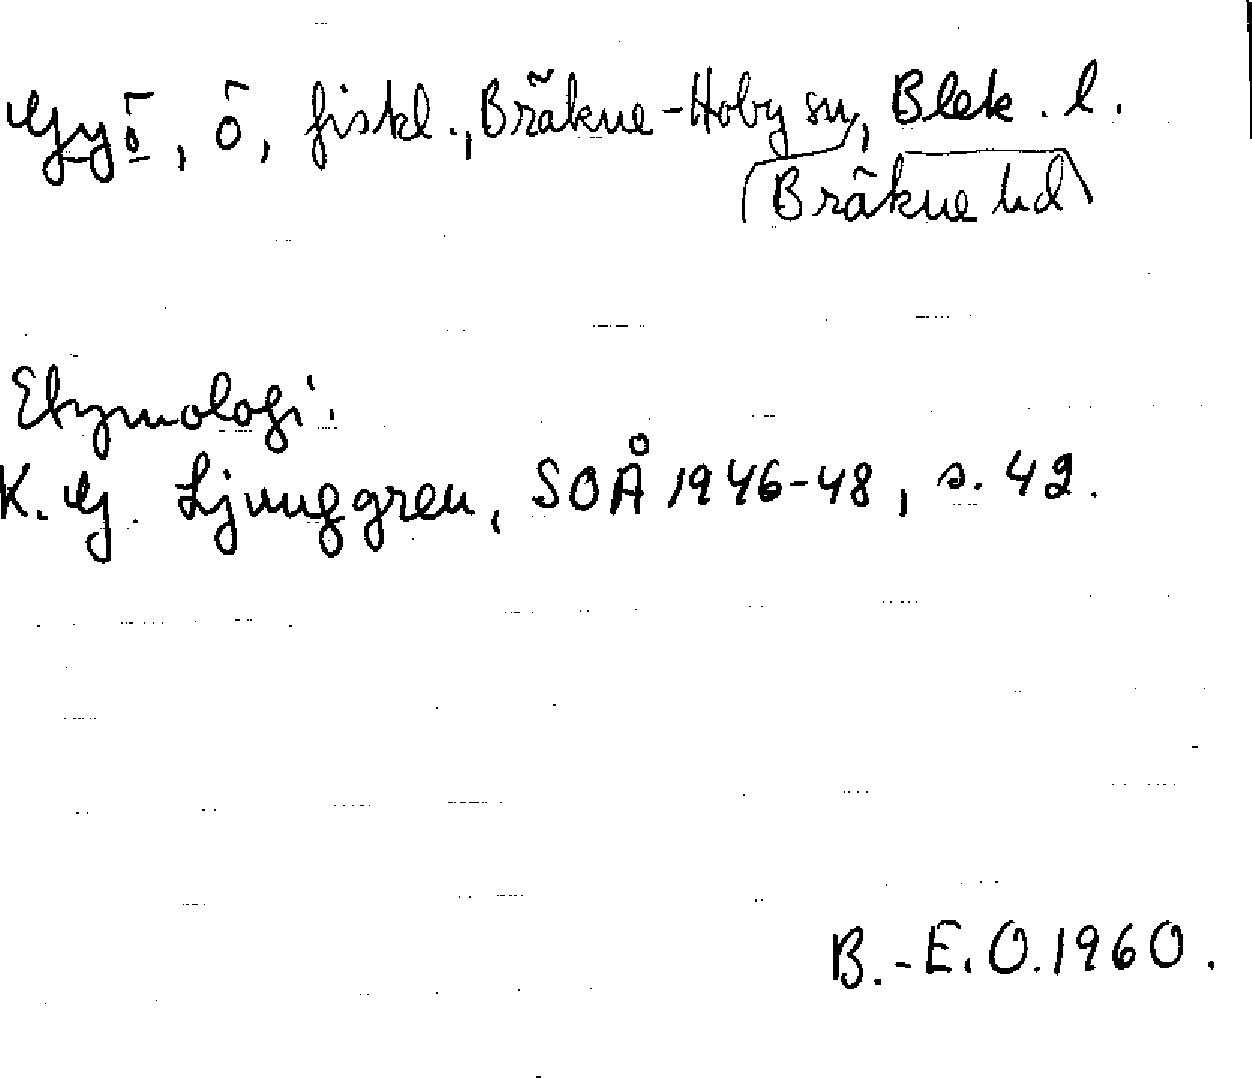 Gyö, ö, fiskl., Bräkne-Hoby sn, Blek. l.
Bräkne hd
Etymologi:
K. G. Ljunggren, SOÅ 1946-48, s. 42.
B.-E. O. 1960.